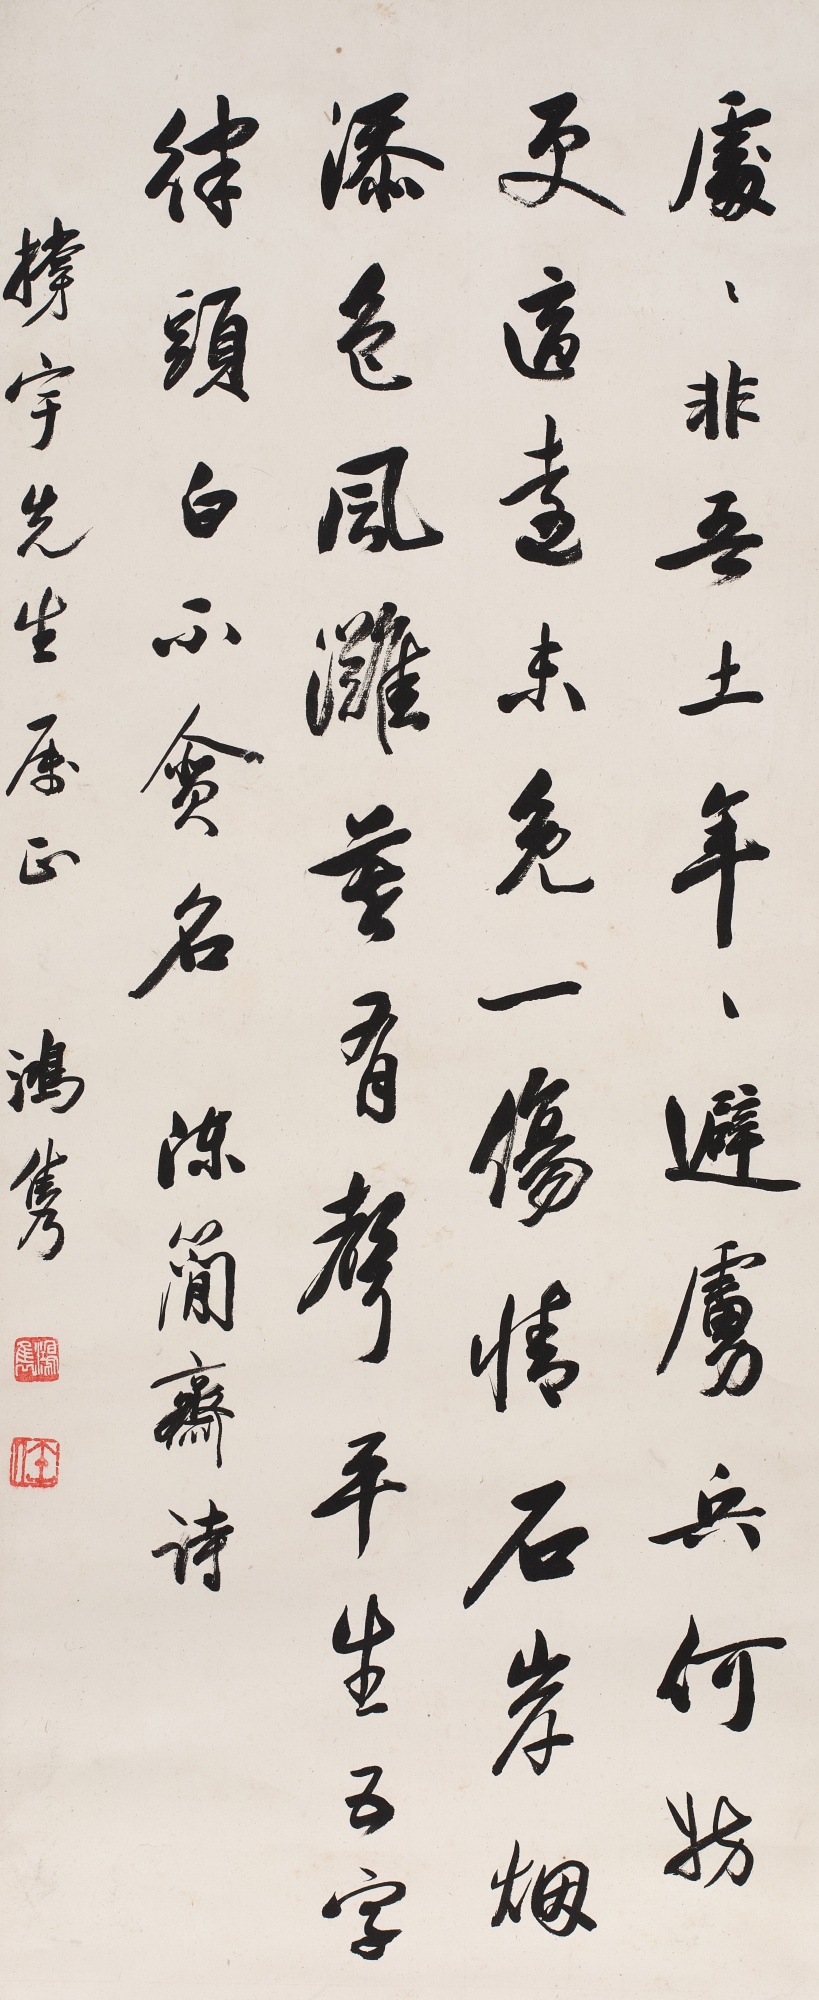 處、非吾土年、避虜兵何妨
更適遠未免一傷情石岸烟
添色風灘暮有聲平生五字
律頭白不貪名 陳簡齋詩
撐宇先生屬正 鴻雋
鴻雋
任